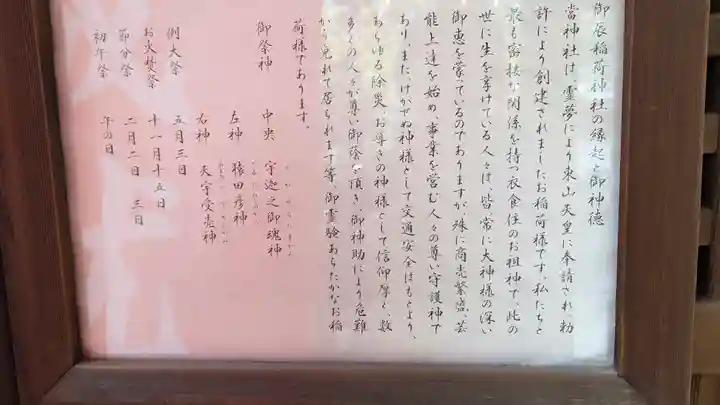 御辰稲荷神社の縁起と御神徳
當神社は、霊夢により東山天皇に奉請され、勅
許により創建されましたお稲荷様です。私たちと
最も密接な関係を持つ衣食住のお祖神で、此の
世に生を享けている人々は、皆、常に大神様の深い
御恵を蒙っているのでありますが、殊に商売繁盛、芸
能上達を始め、事業を営む人々の尊い守護神で
あり、また、けがせぬ神様として交通安全はもとより、
あらゆる除災、お導きの神様として信仰厚く、数
多くの人々が尊い御蔭を頂き、御神助により危難
から免れて居られます等、御霊験あらたかなお稲
荷様であります。
御祭神 中央 宇迦之御魂神
左神 猿田彦神
右神 天宇受売神
例大祭 五月三日
お火焚祭 十一月十五日
節分祭 二月二日 三日
初午祭 午の日